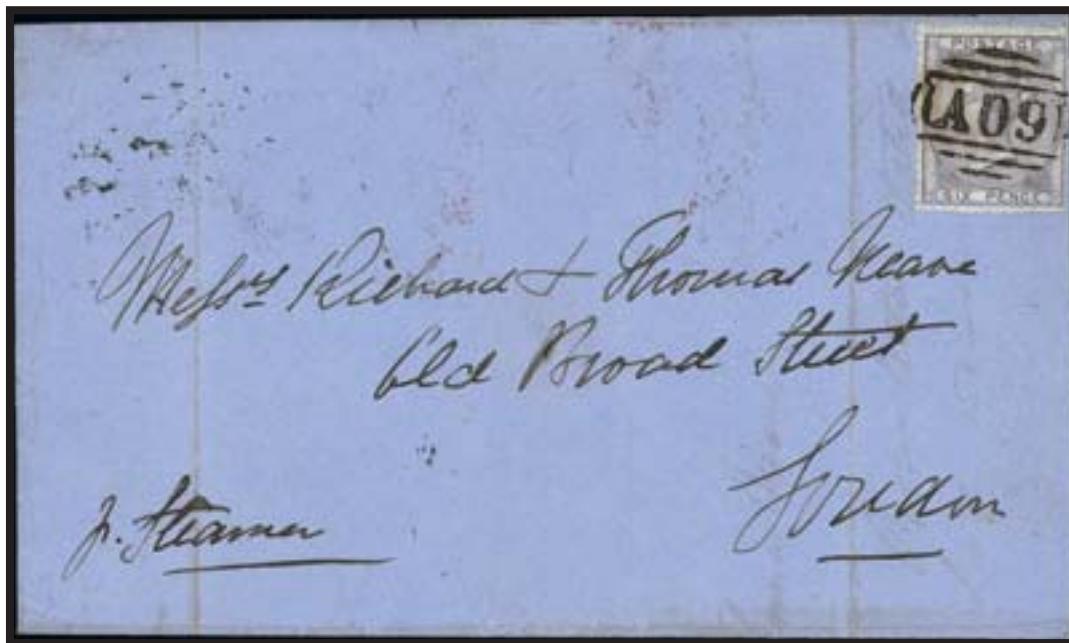 POSTAGE
A09
SIX PENCE
Messrs Richard & Thomas Neave
Old Broad Street
London
p. Steamer